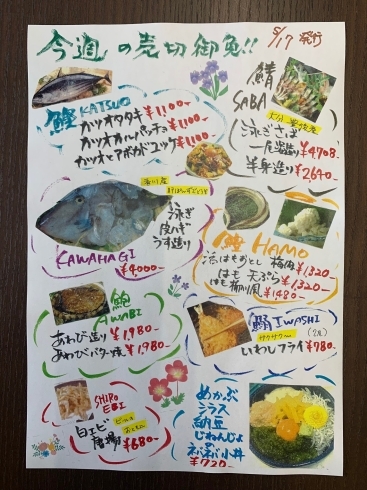 今週の売切御免!!
5/17 発行
鰹 KATSUO
カツオタタキ ¥1,100-
カツオカルパッチョ ¥1,100-
カツオとアボカドユッケ ¥1,100-
鯖
SABA
泳ぎさば
一尾造り ¥4708-
半身造り ¥2640-
香川産
泳ぎ
皮はぎ
うす造り
KAWAHAGI
¥4000-
鱧 HAMO
活はもおとし 梅肉 ¥1,320
はも 天ぷら ¥1,320-
はも柳川風 ¥1480-
鮑
AWABI
あわび造り ¥1,980-
あわびバター焼 ¥1,980-
鰯 IWASHI
(2尾)
サクサク〜
いわしフライ ¥780-
SHIRO
EBI
白エビ
唐揚
¥680-
めかぶ
シラス
納豆
じねんじょ
の
ネバネバ小丼
¥720-